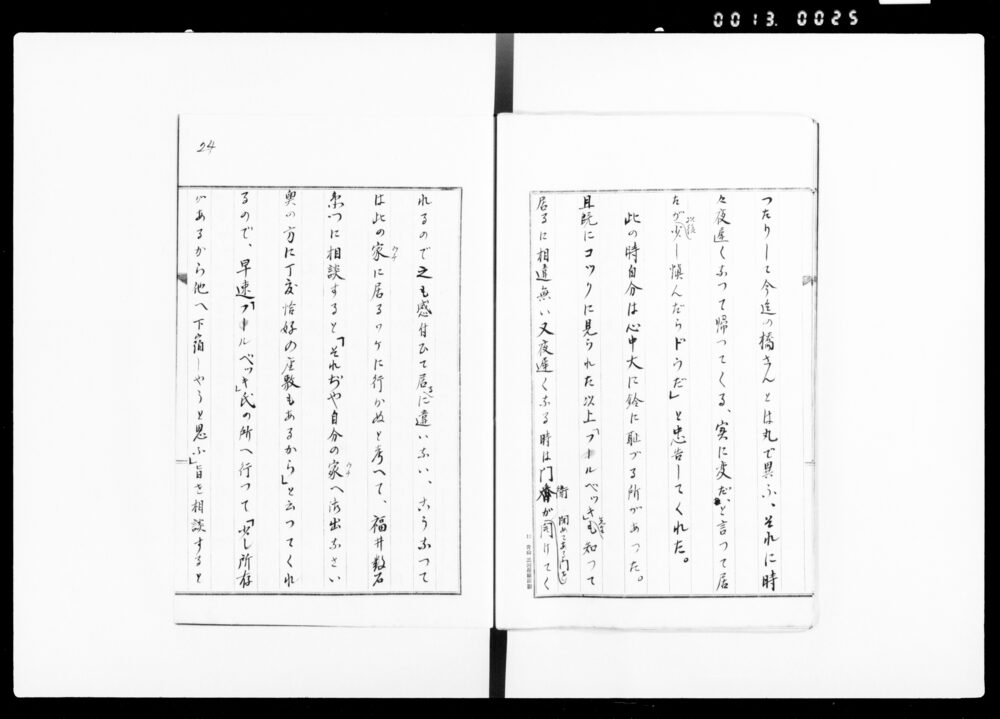 0013.0025
つたりして今迄の橋さんとは丸で異ふ、それに時
々夜遅くなつて帰つてくる、実に変だ、と言つて居
たが少し以後慎んだらドウだ」と忠告してくれた。
此の時自分は心中大に鈴に恥づる所があつた。
且既にコックに見られた以上「ブールベッキ」先生も知つて
居るに相違無い又夜遅くなる時は門衛が閉めてある門を開けてく
24
れるので之も感付ひて居るに違いない、こうなつて
は此の家ウチに居るワケに行かぬと考へて、福井数右
衛門に相談すると、「それぢや自分の家ウチへ御出なさい
奥の方に丁度恰好の座敷もあるから」と云つてくれ
るので、早速「ブールベッキ」氏の所へ行つて「少し所存
があるから他へ下宿しやうと思ふ」旨を相談すると